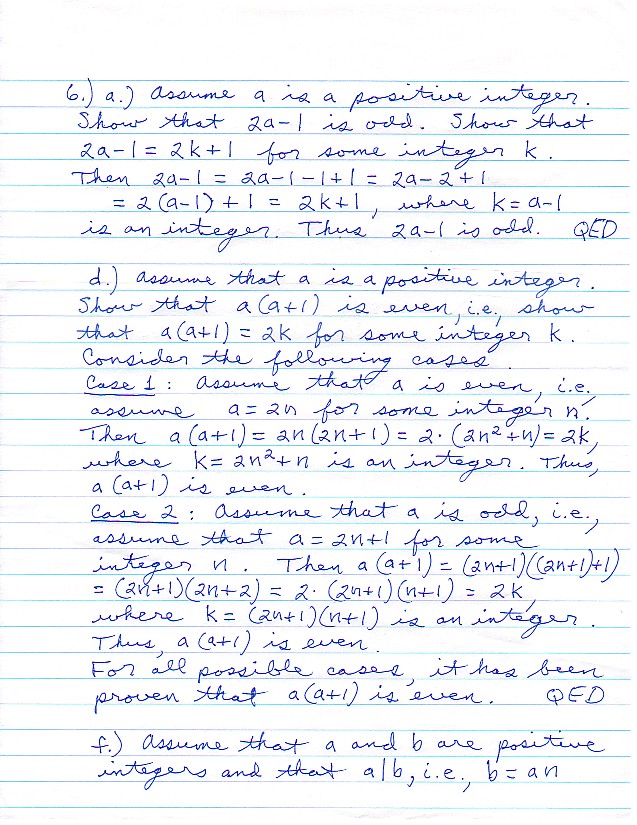 6.) a.) Assume a is a positive integer.
Show that 2a-1 is odd. Show that
2a-1 = 2k+1 for some integer k.
Then 2a-1 = 2a-1-1+1 = 2a-2+1
= 2(a-1)+1 = 2k+1, where k=a-1
is an integer. Thus 2a-1 is odd. QED
d.) Assume that a is a positive integer.
Show that a(a+1) is even, i.e., show
that a(a+1) = 2k for some integer k.
Consider the following cases.
Case 1: Assume that a is even, i.e.
assume a=2n for some integer n.
Then a(a+1) = 2n(2n+1) = 2·(2n²+n) = 2k,
where k=2n²+n is an integer. Thus,
a(a+1) is even.
Case 2: Assume that a is odd, i.e.,
assume that a=2n+1 for some
integer n. Then a(a+1) = (2n+1)((2n+1)+1)
= (2n+1)(2n+2) = 2·(2n+1)(n+1) = 2k,
where k=(2n+1)(n+1) is an integer.
Thus, a(a+1) is even.
For all possible cases, it has been
proven that a(a+1) is even. QED
f.) Assume that a and b are positive
integers and that a|b, i.e., b=an